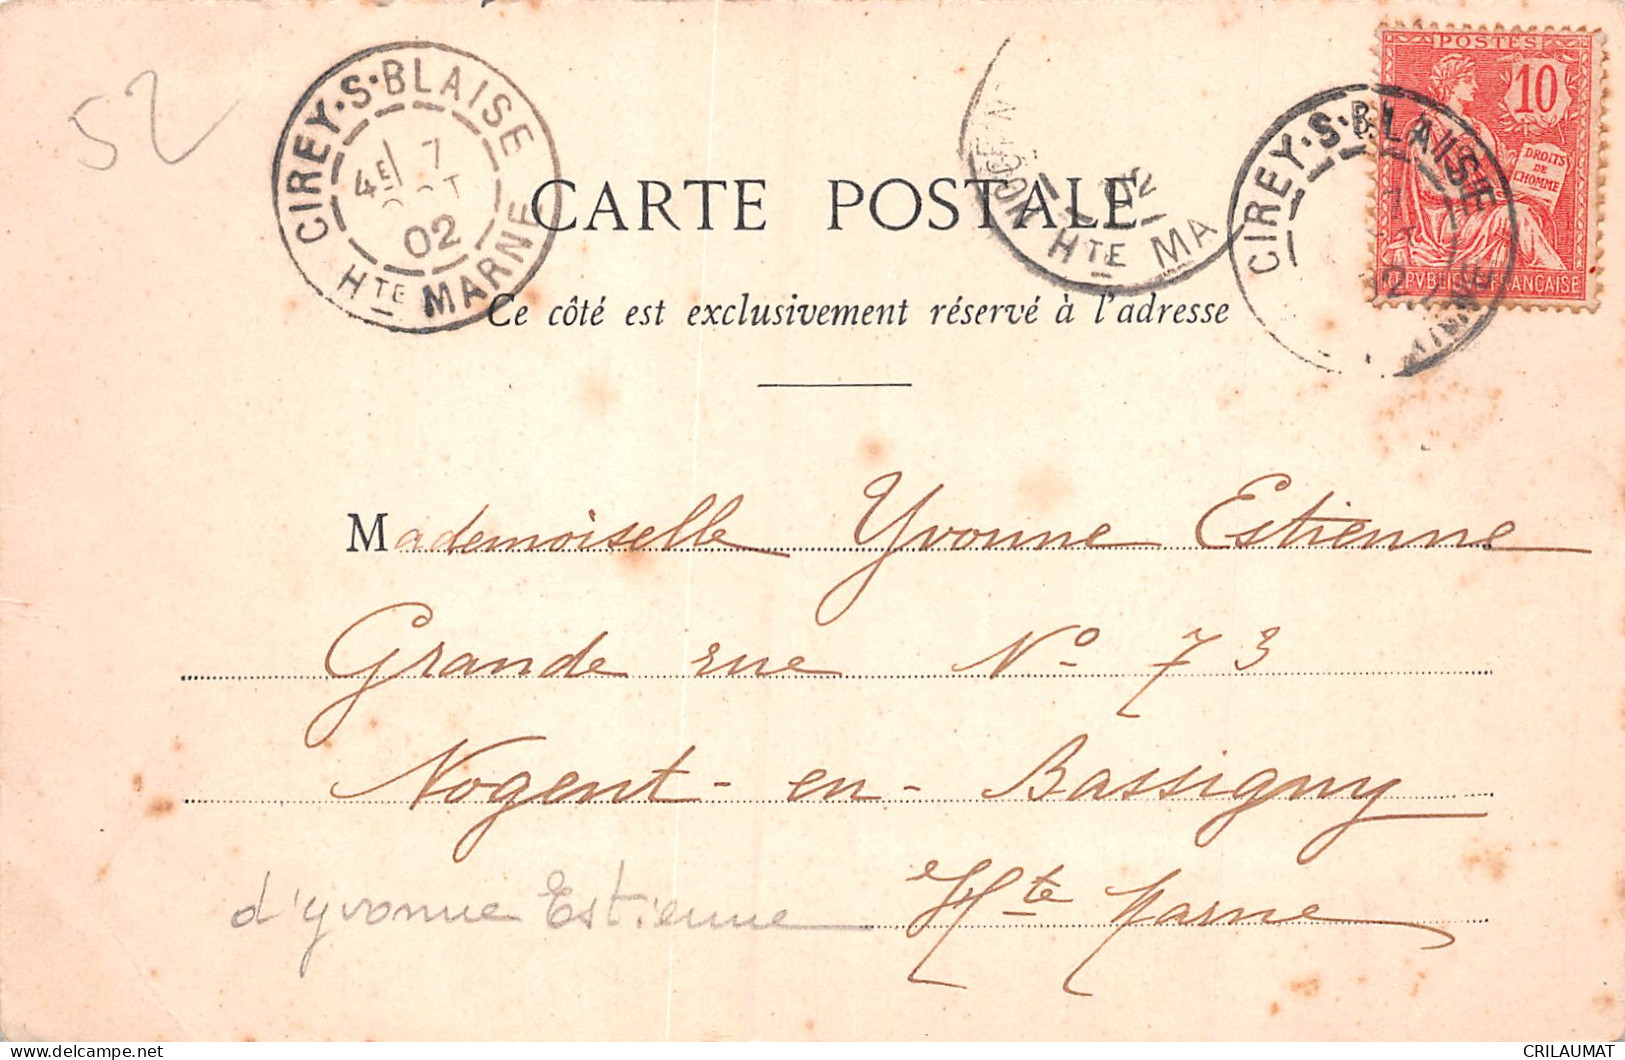 52
CIREY-S-BLAISE
4E 7
02
HTE MARNE
HTE MA
CIREY-S-BLAISE
POSTES
10
DROITS
DE
L'HOMME
CARTE POSTALE
Ce côté est exclusivement réservé à l'adresse
Mademoiselle Yvonne Estienne
Grande rue No 73
Nogent-en-Bassigny
Hte Marne
d'yvonne Estienne
CRILAUMAT